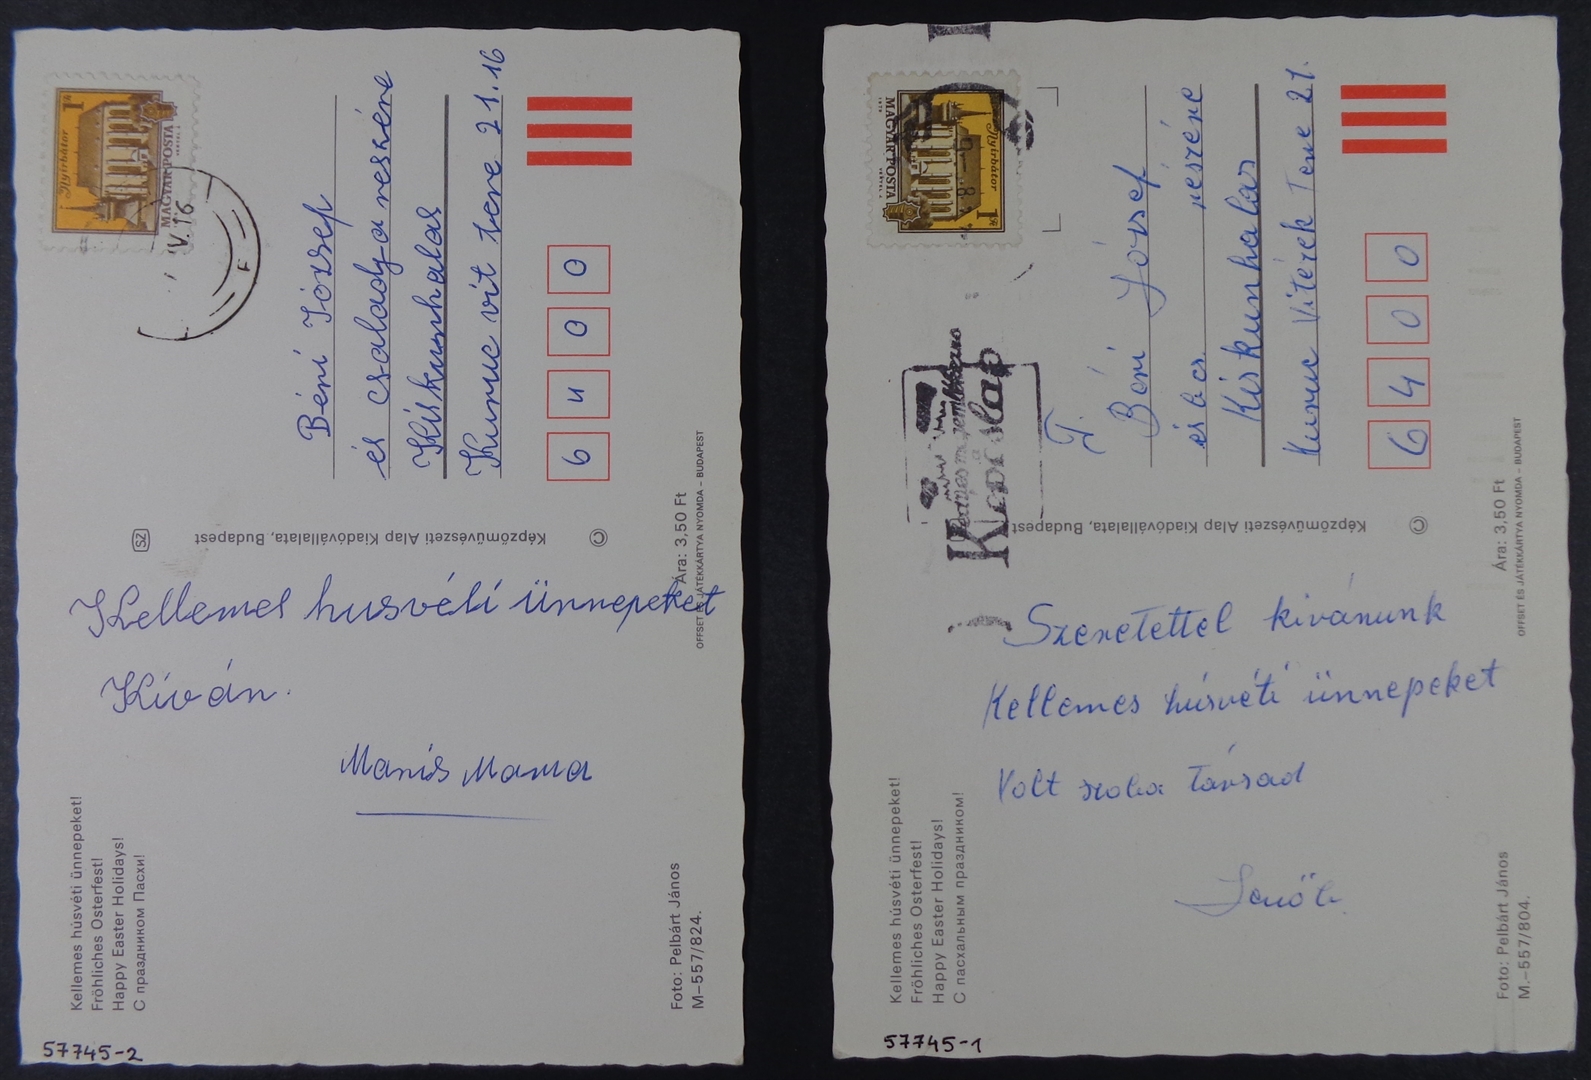 1Ft
Nyírbátor
MAGYAR POSTA
IV. 16
Béni József
és családja reszére
Kiskunhalas
Kuruc vit tere 21.16
6400
© Képzőművészeti Alap Kiadóvállalata, Budapest
SZ
Kellemes husvéti ünnepeket
Kíván.
Mariš Mama
Kellemes húsvéti ünnepeket!
Fröhliches Osterfest!
Happy Easter Holidays!
С праздником Пасхи!
Ára: 3,50 Ft
OFFSET ÉS JÁTÉKKÁRTYA NYOMDA – BUDAPEST
Foto: Pelbárt János
M–557/824.
57745-2
1Ft
Nyírbátor
MAGYAR POSTA
Képeslap
T.
Béni József
és b cs. részére
Kiskunhalas
Kuruc Vitézek Tere 21.
6400
© Képzőművészeti Alap Kiadóvállalata, Budapest
Szeretettel kivánunk
Kellemes húsvéti ünnepeket
Volt szoba Társad
Jenőék
Kellemes húsvéti ünnepeket!
Fröhliches Osterfest!
Happy Easter Holidays!
С пасхальным праздником!
Ára: 3,50 Ft
OFFSET ÉS JÁTÉKKÁRTYA NYOMDA – BUDAPEST
Foto: Pelbárt János
M.–557/804.
57745-1